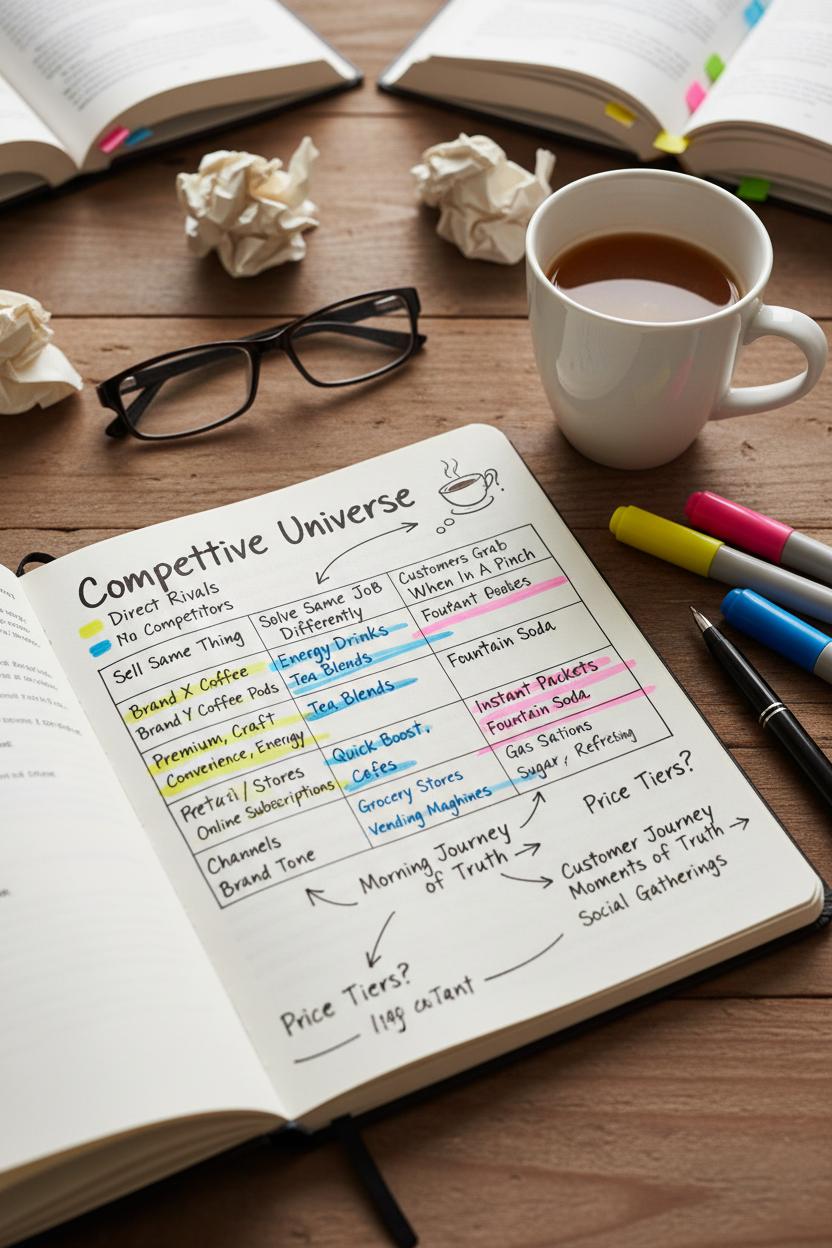 Compettive Universe
Direct Rivals
No Competitors
Sell Same Thing
Solve Same Job
Differently
Customers Grab
When In A Pinch
Brand X Coffee
Brand Y Coffee Pods
Energy Drinks
Tea Blends
Fountain Soda
Premium, Craft
Convenience, Energy
Tea Blends
Instant Packets
Fountain Soda
Online Subscriptions
Quick Boost,
Gas Sations
Sugar, Refreshing
Channels
Brand Tone
Grocery Stores
Vending Maghines
Morning Journey
of Truth
Price Tiers?
Customer Journey
Moments of Truth
Social Gatherings
Price Tiers?